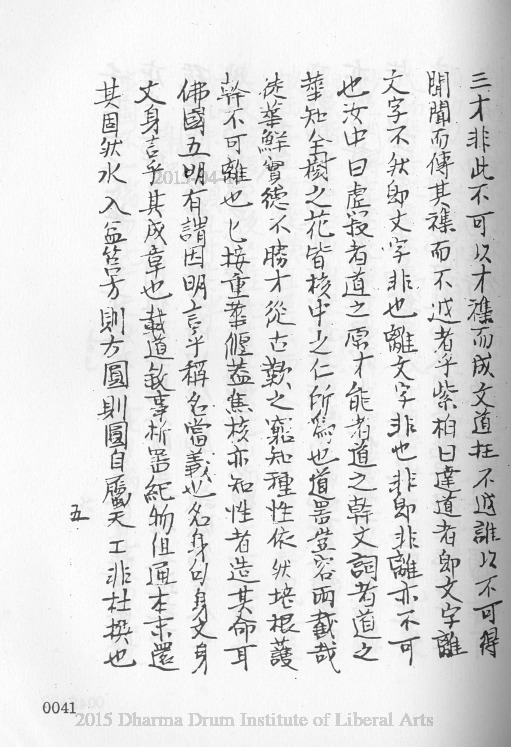 三才非此不可以才襍而成文道在不迹誰以不可得
聞聞而傳其襍而不迹者乎紫柏曰達道者卽文字離
文字不狀卽文字非也離文字非也非卽非離亦不可
也汝中曰虛寂者道之原才能者道之幹文詞者道之
華知全樹之花皆核中之仁所爲也道噐豈容兩截哉
徒華鮮實德不勝才從古歎之窮知種性依狀培根護
幹不可離也匕接重華偃葢焦核亦知性者造其命耳
佛國五明有謂因明言乎稱名當義也名身句身文身
文身言乎其成章也載道敘事析噐紀物但通本末還
其固狀水入盆筥方則方圓則圓自屬天工非杜撰也
五
0041
2015 Dharma Drum Institute of Liberal Arts